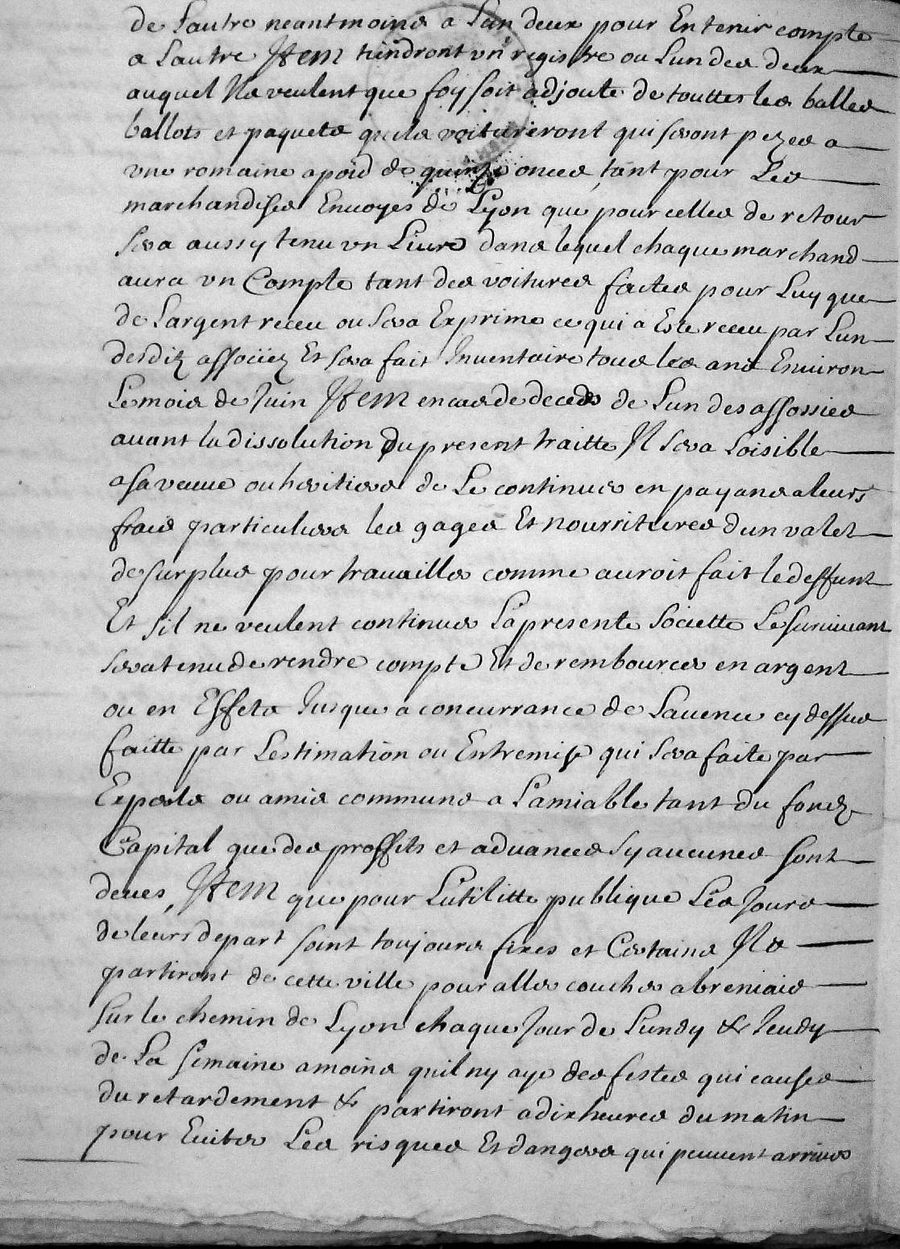 de Lautre neantmoins a Lun deux pour En tenir compte
a Lautre Item tiendront un registre ou Lun des deux
auquel Ils veulent que foy soit adjoute de touttes les balles
ballots et paquets quils voitureront qui seront pezes a
une romaine a poid de quinze onces tant pour Les
marchandises Envoyes de Lyon que pour celles de retour
sera aussy tenu un Livre dans lequel chaque marchand
aura un Compte tant des voitures faites pour Luy que
de Largent receu ou sera Exprime ce qui a Este receu par Lun
desdiz associez Et sera fait Inventaire tous les ans Environ
Le mois de Juin Item en cas de deceds de Lun des assossies
avant la dissolution du present traitte Il sera Loisible
a sa vauve ou heritiers de Le continuer en payans a leurs
frais particuliers les gages Et nourritures dun valet
de surplus pour travailler comme auroit fait le deffunt
Et sil ne veulent continuer La presente Societte Le survivant
sera tenu de rendre compte Et de rembourcer en argent
ou en Effets Jusque a concurrance de Lavence cy dessus
faitte par Lestimation ou Entremise qui sera faite par
Experts ou amis communs a Lamiable tant du fondz
Capital que des proffits et advances sy aucunes sont
deues, Item que pour Lutilitte publique Les Jours
de leurs depart soint toujours fixes et Certains Ils
partiront de cette ville pour aller coucher a breniais
sur le chemin de Lyon chaque Jour de Lundy & Jeudy
de La semaine a moins quil ny aye des festes qui causes
du retardement & partiront a dix heures du matin
pour Eviter Les risques Et dangers qui peuvent arriver